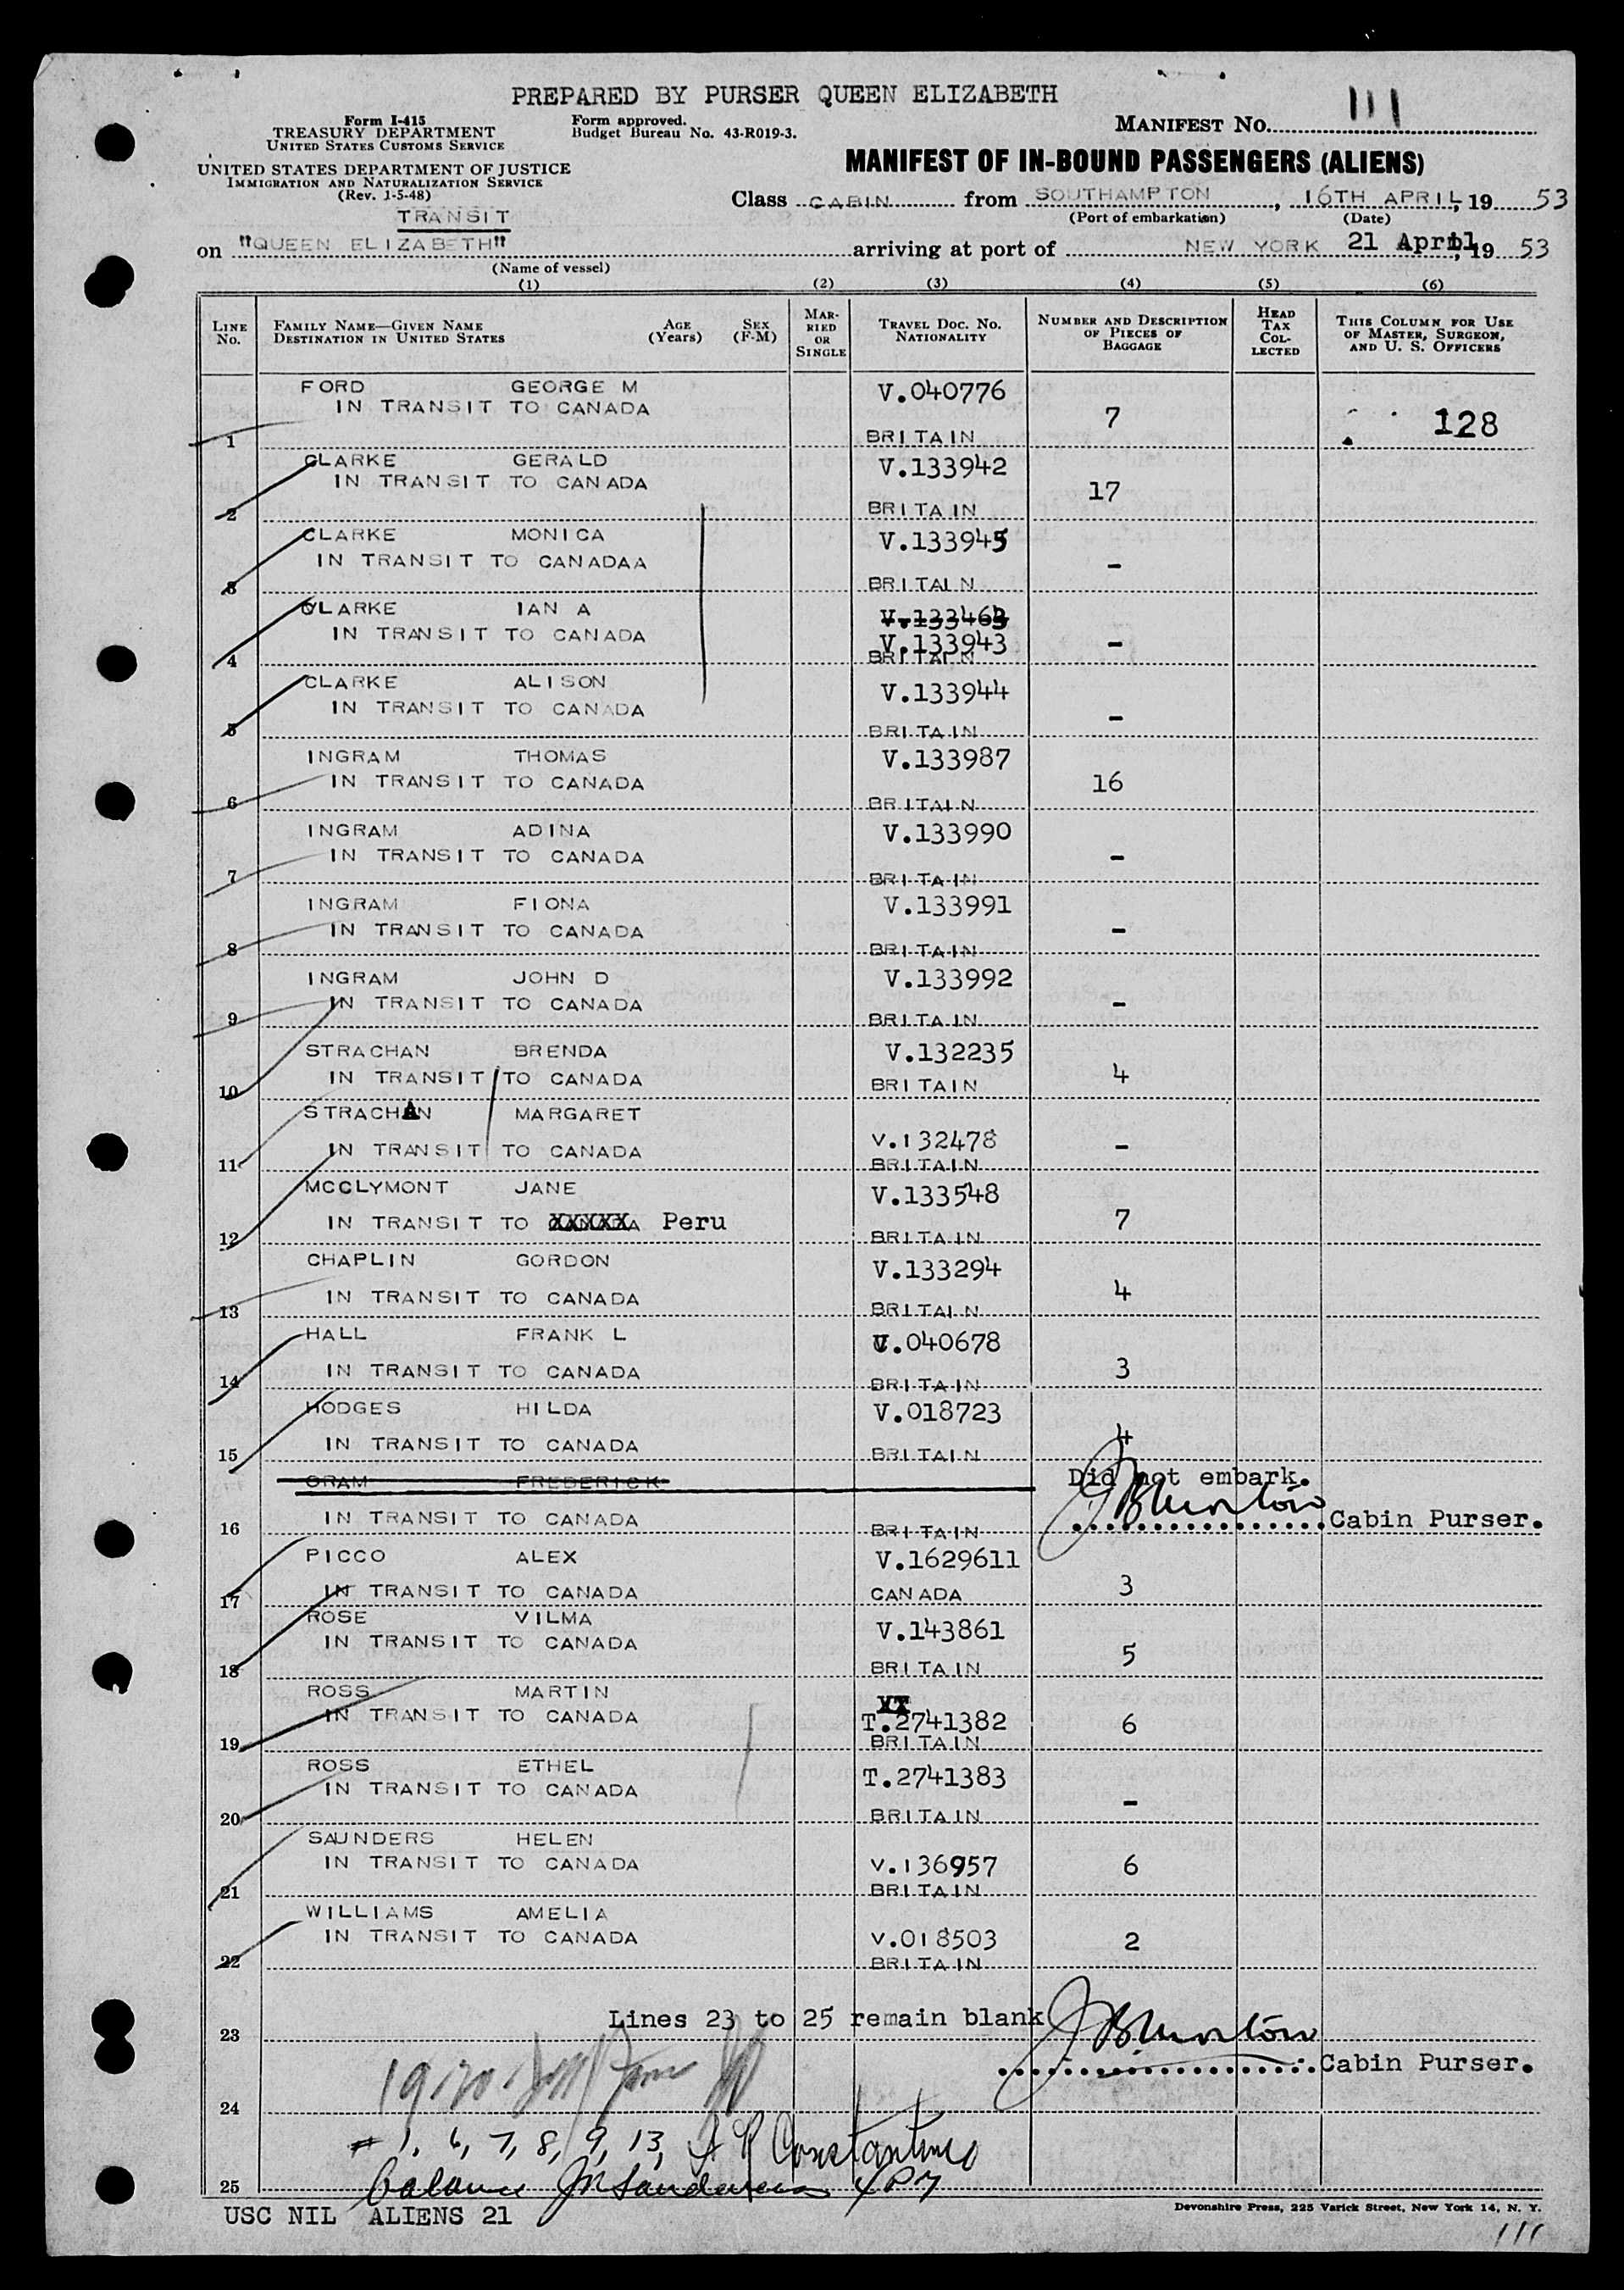 PREPARED BY PURSER QUEEN ELIZABETH
Form I-415
TREASURY DEPARTMENT
UNITED STATES CUSTOMS SERVICE
Form approved.
Budget Bureau No. 43-R019-3.
MANIFEST NO. 111
UNITED STATES DEPARTMENT OF JUSTICE
IMMIGRATION AND NATURALIZATION SERVICE
(Rev. 1-5-48)
MANIFEST OF IN-BOUND PASSENGERS (ALIENS)
TRANSIT
Class CABIN from SOUTHAMPTON, 16TH APRIL, 19 53
(Port of embarkation) (Date)
on "QUEEN ELIZABETH" arriving at port of NEW YORK 21 April, 19 53
(Name of vessel)
(1) (2) (3) (4) (5) (6)
LINE NO.
FAMILY NAME—GIVEN NAME
DESTINATION IN UNITED STATES
AGE (YEARS)
SEX (F-M)
MARRIED OR SINGLE
TRAVEL DOC. NO.
NATIONALITY
NUMBER AND DESCRIPTION OF PIECES OF BAGGAGE
HEAD TAX COLLECTED
THIS COLUMN FOR USE OF MASTER, SURGEON, AND U. S. OFFICERS
FORD GEORGE M V.040776
IN TRANSIT TO CANADA 7 128
1 BRITAIN
CLARKE GERALD V.133942
IN TRANSIT TO CANADA 17
2 BRITAIN
CLARKE MONICA V.133945
IN TRANSIT TO CANADAA -
3 BRITAIN
CLARKE IAN A V.133463
IN TRANSIT TO CANADA V.133943 -
4 BRITAIN
CLARKE ALISON V.133944
IN TRANSIT TO CANADA -
5 BRITAIN
INGRAM THOMAS V.133987
IN TRANSIT TO CANADA 16
6 BRITAIN
INGRAM ADINA V.133990
IN TRANSIT TO CANADA -
7 BRITAIN
INGRAM FIONA V.133991
IN TRANSIT TO CANADA -
8 BRITAIN
INGRAM JOHN D V.133992
IN TRANSIT TO CANADA -
9 BRITAIN
STRACHAN BRENDA V.132235
IN TRANSIT TO CANADA 4
10 BRITAIN
STRACHAN MARGARET
IN TRANSIT TO CANADA V.132478 -
11 BRITAIN
MCCLYMONT JANE V.133548
IN TRANSIT TO XXXXXA Peru 7
12 BRITAIN
CHAPLIN GORDON V.133294
IN TRANSIT TO CANADA 4
13 BRITAIN
HALL FRANK L V.040678
IN TRANSIT TO CANADA 3
14 BRITAIN
HODGES HILDA V.018723
IN TRANSIT TO CANADA 4
15 BRITAIN
ORAM FREDERICK Did not embark.
IN TRANSIT TO CANADA Cabin Purser.
16 BRITAIN
PICCO ALEX V.1629611
IN TRANSIT TO CANADA 3
17 CANADA
ROSE VILMA V.143861
IN TRANSIT TO CANADA 5
18 BRITAIN
ROSS MARTIN XT
IN TRANSIT TO CANADA T.2741382 6
19 BRITAIN
ROSS ETHEL T.2741383
IN TRANSIT TO CANADA -
20 BRITAIN
SAUNDERS HELEN
IN TRANSIT TO CANADA V.136957 6
21 BRITAIN
WILLIAMS AMELIA
IN TRANSIT TO CANADA V.018503 2
22 BRITAIN
Lines 23 to 25 remain blank
23
Cabin Purser.
19-20
24
# 1, 6, 7, 8, 9, 13, Constantino
25 balance
USC NIL ALIENS 21
Devonshire Press, 225 Varick Street, New York 14, N. Y.
111